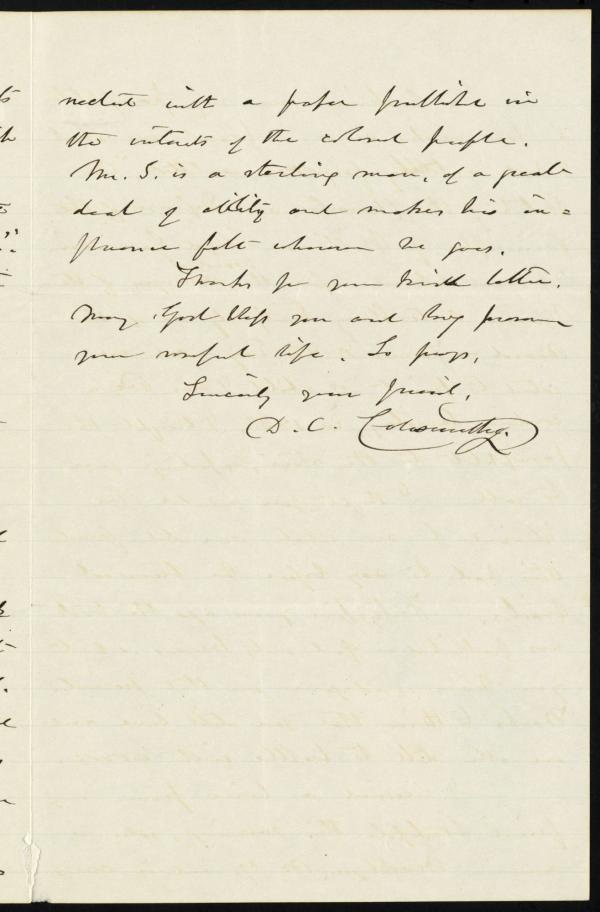 nected with a paper published in
the interests of the colored people.
Mr. S. is a sterling man, of a great
deal of ability and makes his in=
fluence felt wherever he goes.
Thanks for your kind letter.
May God bless you and long preserve
your useful life. So prays,
Sincerely your friend,
D. C. Colesworthy.